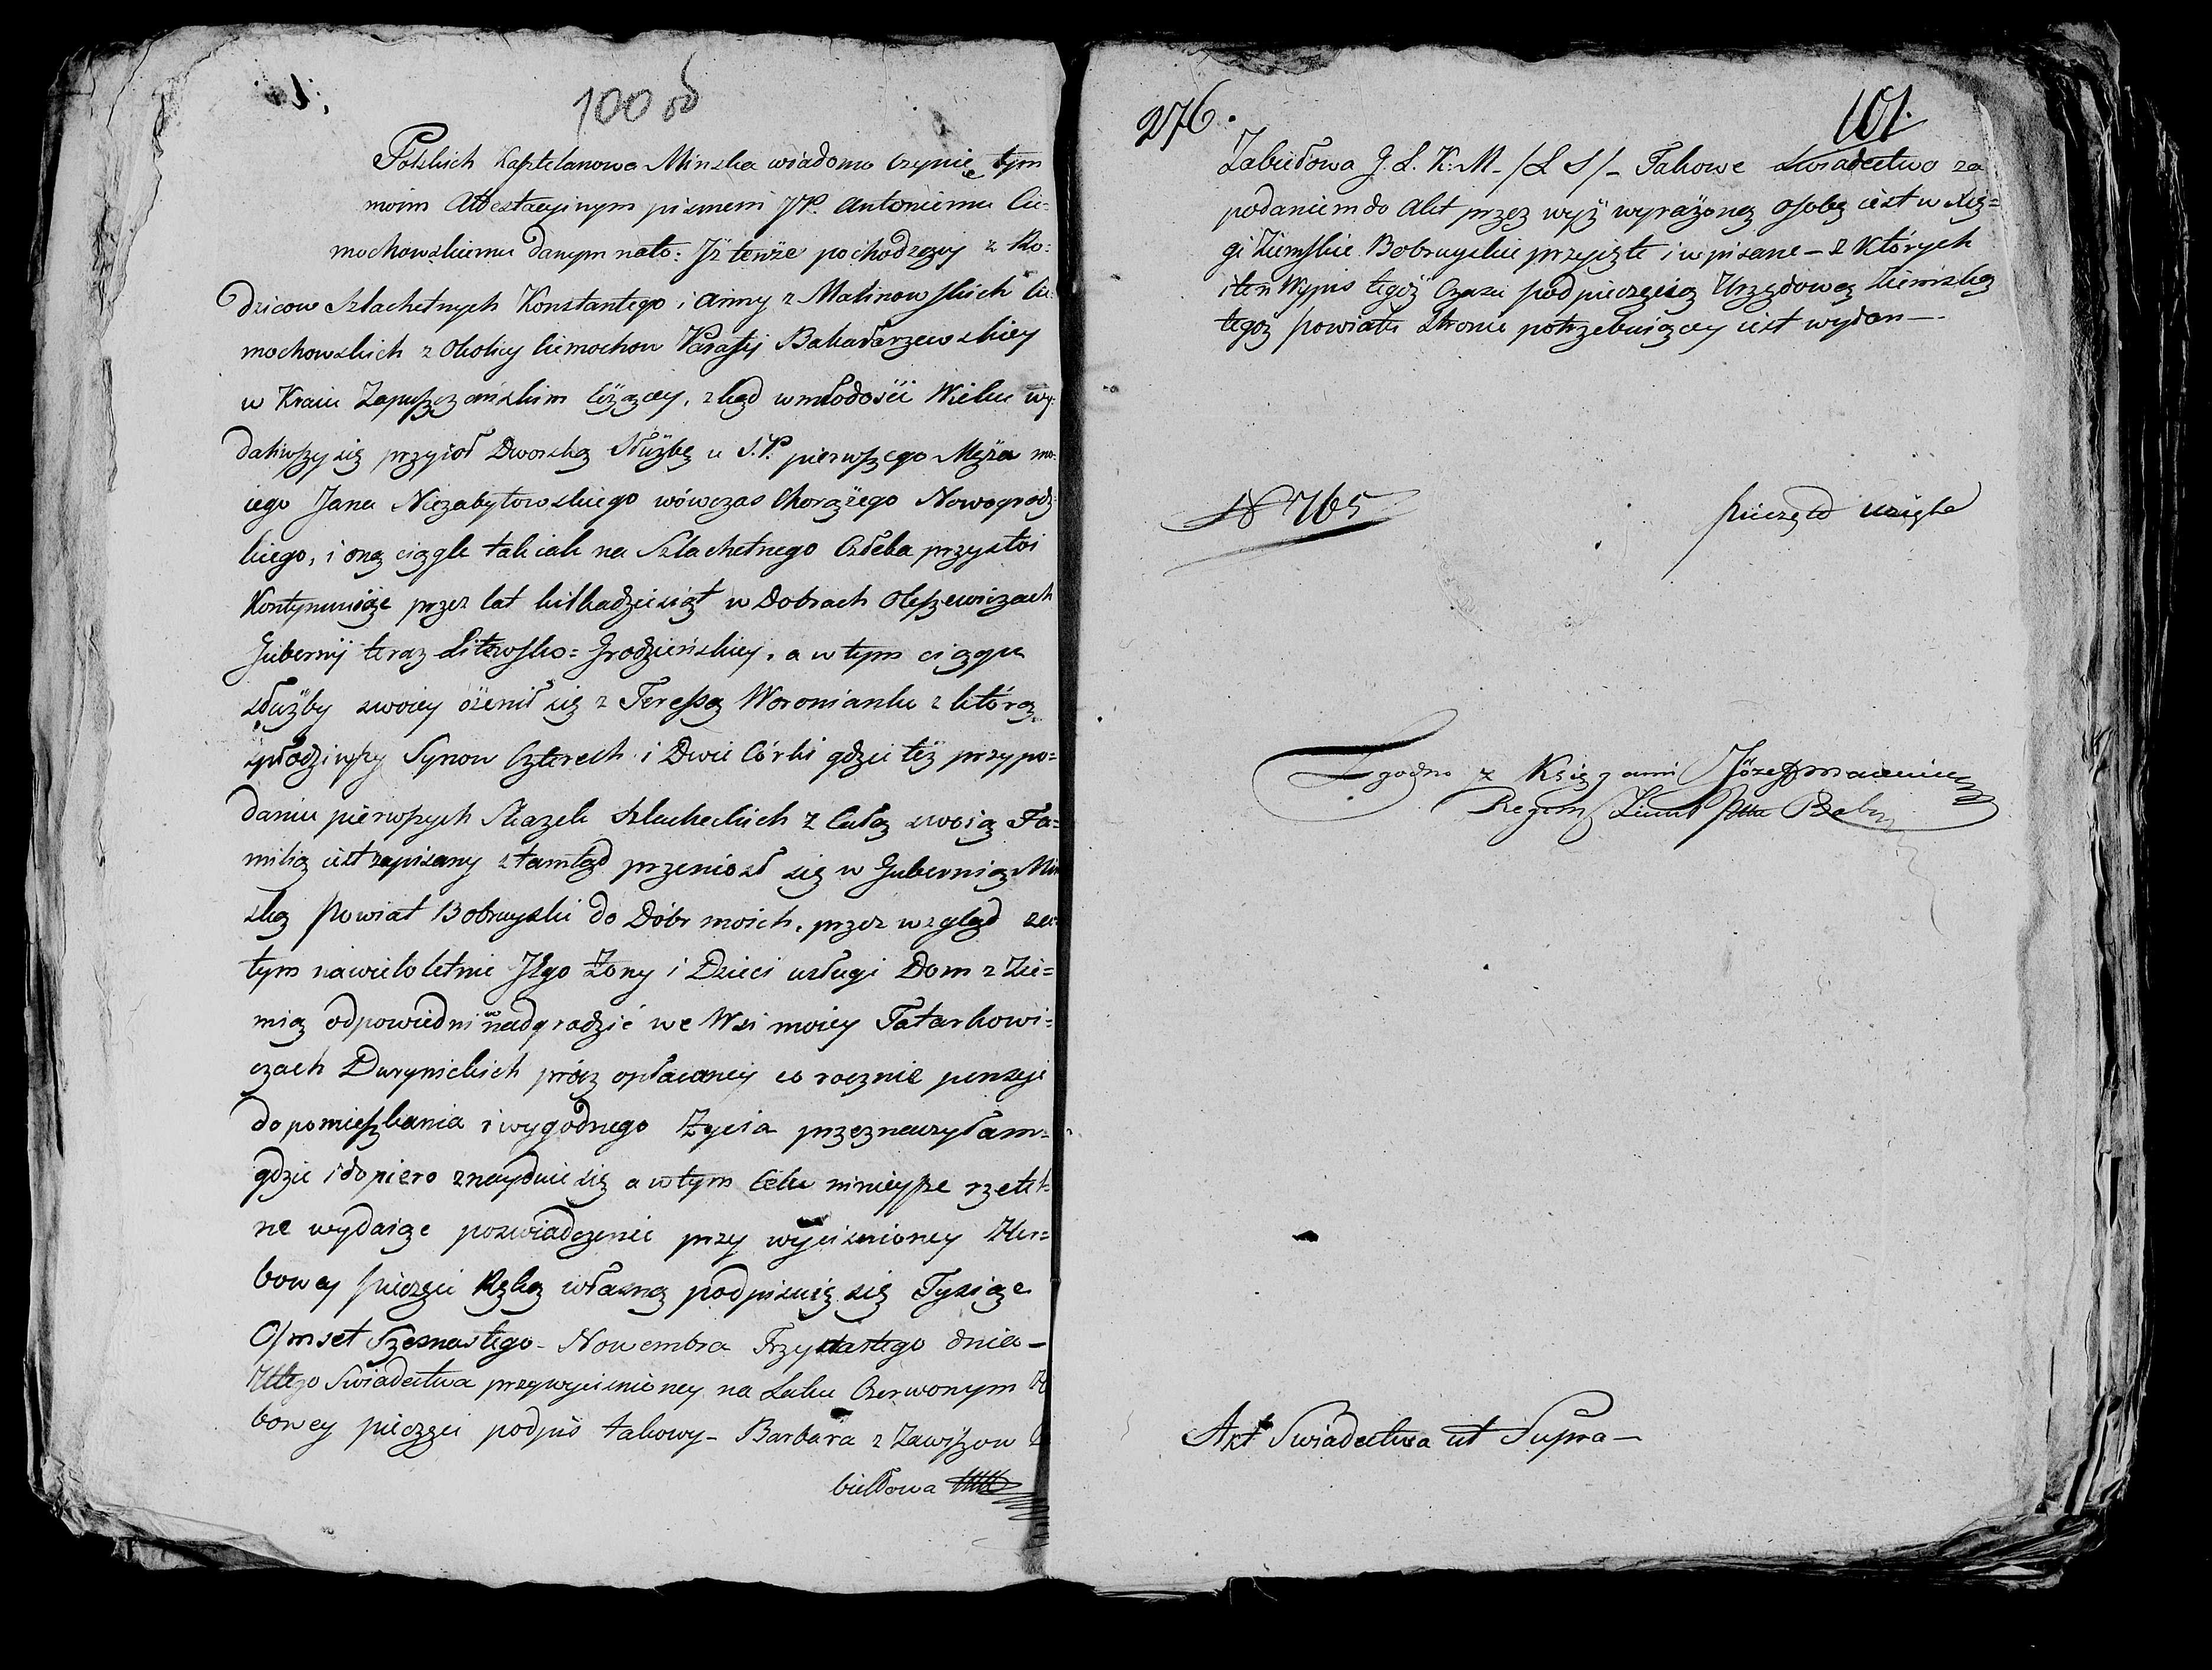 100 od
Polskich Kasztelanowa Minska wiadomo czynię tym
moim Attestacyinym pismem JP. Antoniemu Cie=
mochowskiemu danym na to: Iż tenże pochodzący z Ro=
dzicow Szlachetnych Konstantego i Anny z Malinowskich Cie=
mochowskich z Okolicy Ciemochow Parafij Bakałarzewskiey
w Kraiu Zapuszczańskim leżącey, zkąd w młodości Wieku wy=
daliwszy się przyioł Dworską Służbę u S.P. pierwszego Męża mo=
iego Jana Niezabytowskiego wówczas Chorążego Nowogrodz=
kiego, i oną ciągle tak iak na Szlachetnego Człeka przystoi
Kontynuuiąc przez lat kilkadziesiąt w Dobrach Oleszewiczach
Gubernij teraz Litewsko=Grodzieńskiey, a w tym ciągu
służby swoiey ożenił się z Teressą Woronianką z którą
spłodziwszy Synow Czterech i Dwie Córki gdzie też przy po=
daniu pierwszych Skazek Szlacheckich z Całą swoią Fa=
milią iest zapisany ztamtąd przeniosł się w Gubernią Min
ską Powiat Bobruyski do Dóbr moich, przez wzgląd za=
tym na wieloletnie Jego Żony i Dzieci usługi Dom z Zie=
mią odpowiedni w nadgrodzie we Wsi moiey Tatarkowi=
czach Durynickich prócz opłacaney co rocznie pensyi
do pomieszkania i wygodnego Życia przeznaczyłam=
gdzie i dopiero znayduie się a w tym Celu ninieysze rzetel=
ne wydaiąc poswiadczenie przy wycisnioney Her=
bowey pieczęci Ręką własną podpisuię się Tysiąc
Osmset Szesnastego - Nowembra Trzynastego dnia -
U tego Swiadectwa przy wycisnioney na Laku Czerwonym H
bowey pieczęci podpis takowy - Barbara z Zawiszow
biełłowa
276.
101.
Zabiełłowa G. L. K: M - /L S/ - Takowe Swiadectwo za
podaniem do Akt przez wyż wyrażoną osobę iest w Xię=
gi Ziemskie Bobruyskie przyięte i wpisane - z Których
i ten Wypis tegoż Czasu pod pieczęcią Urzędową Ziemską
tegoż powiatu Stronie potrzebuiącey iest wydan -
N 765
pieczęć
Zgodno z Księgami Józef
Regent Ziem
Akt Swiadectwa ut Supra -